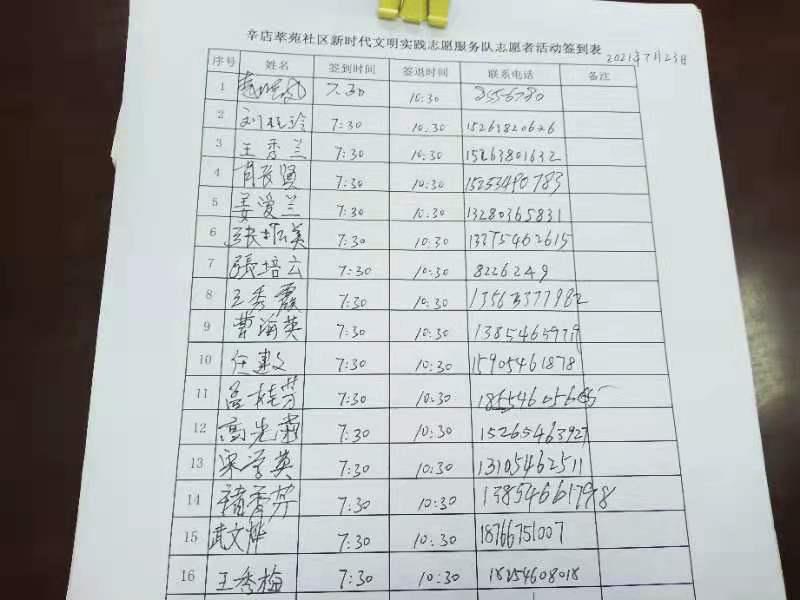 辛店萃苑社区新时代文明实践志愿服务队志愿者活动签到表
2021年7月23日
序号 姓名 签到时间 签退时间 联系电话 备注
1 7:30 10:30 8556780
2 刘桂玲 7:30 10:30 15263820626
3 王秀兰 7:30 10:30 15263801632
4 肖长贤 7:30 10:30 15253490783
5 姜爱兰 7:30 10:30 13280365831
6 张培英 7:30 10:30 13375462615
7 張培云 7:30 10:30 8226249
8 王秀霞 7:30 10:30 13563377982
9 曹海英 7:30 10:30 13854659779
10 任建文 7:30 10:30 15905461878
11 吕桂芳 7:30 10:30
12 高光荣 7:30 10:30 15265463927
13 宋学英 7:30 10:30 13105462511
14 褚秀芳 7:30 10:30
15 武文 7:30 10:30 18766751007
16 王秀梅 7:30 10:30 18254608018